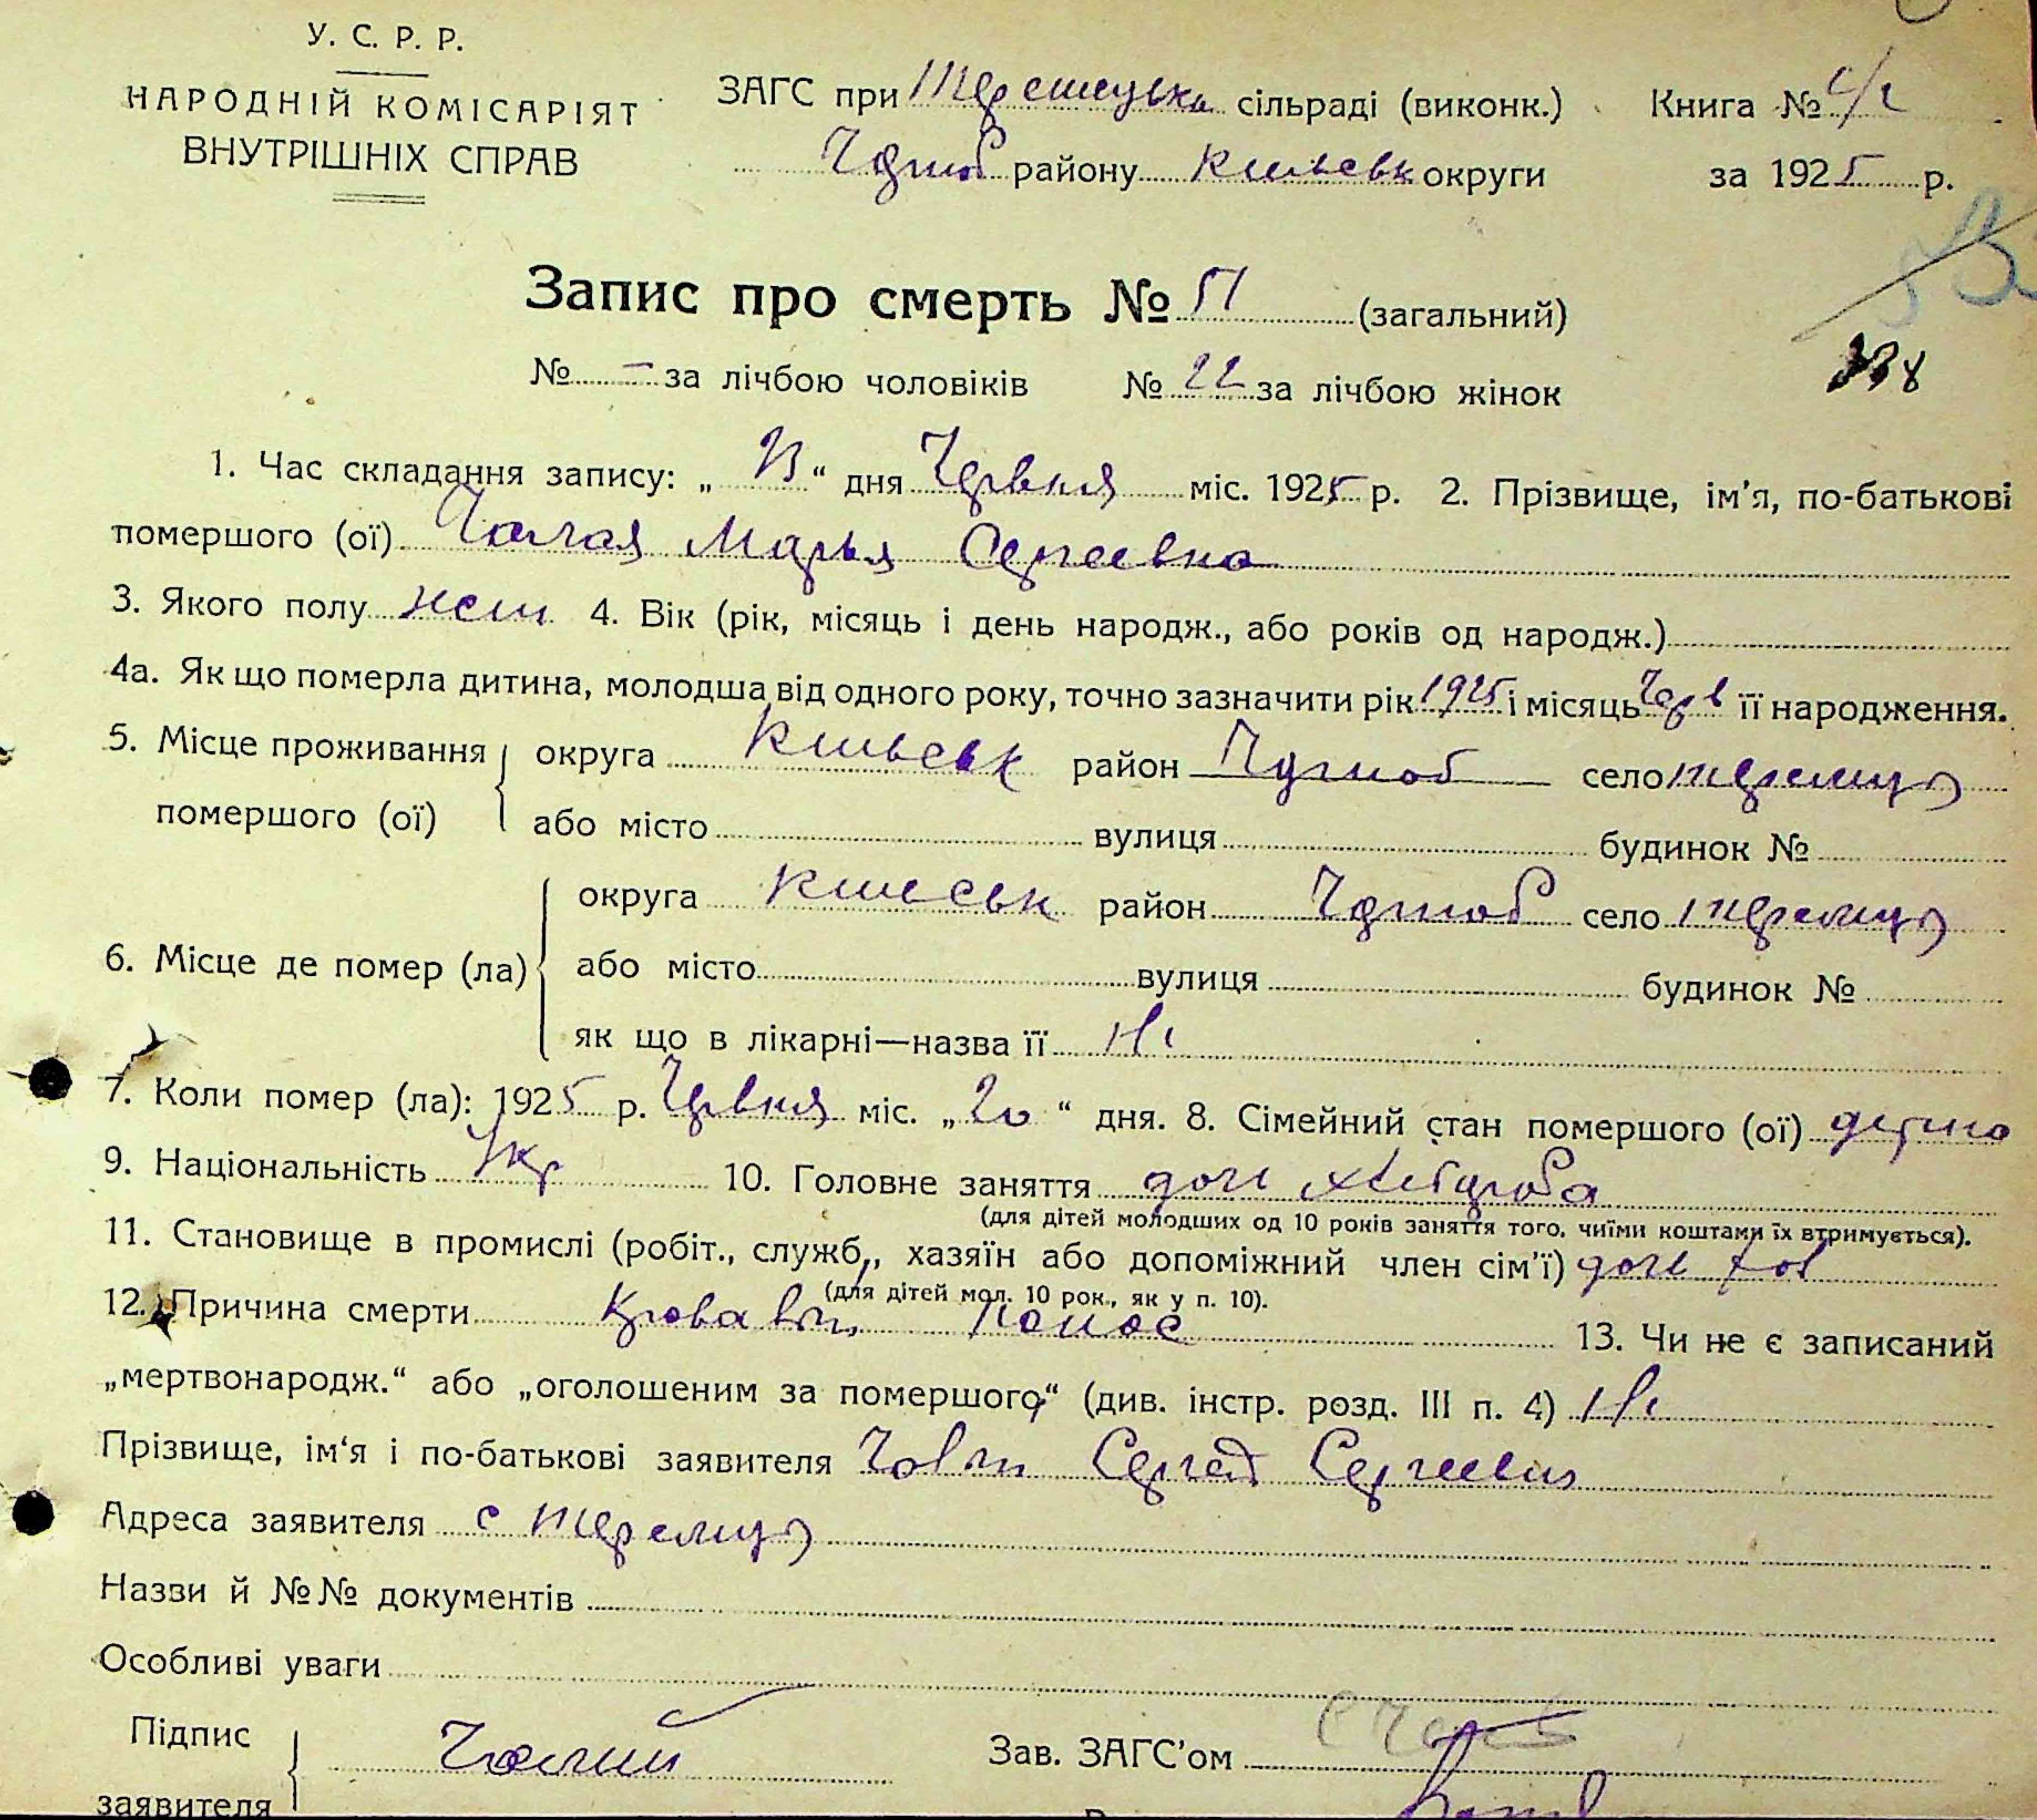 У. С. Р. Р.
НАРОДНІЙ КОМІСАРІЯТ
ВНУТРІШНІХ СПРАВ
ЗАГС при сільраді (виконк.) Книга № с/г
Чорноб району Киівськ округи за 1925 р.
Запис про смерть № 51 (загальний)
338
№ — за лічбою чоловіків № 22 за лічбою жінок
1. Час складання запису: „23“ дня Червня міс. 1925 р. 2. Прізвище, ім'я, по-батькові
помершого (ої) Чалая Марья Сергеевна
3. Якого полу жен 4. Вік (рік, місяць і день народж., або років од народж.)
4а. Як що померла дитина, молодша від одного року, точно зазначити рік 1925 і місяць Черв її народження.
5. Місце проживання помершого (ої) округа Киівськ район Чорноб село Теремци
або місто вулиця будинок №
6. Місце де помер (ла) округа Киівськ район Чорноб село Теремци
або місто вулиця будинок №
як що в лікарні—назва її Ні
7. Коли помер (ла): 1925 р. Червня міс. „20“ дня. 8. Сімейний стан помершого (ої) дитина
9. Національність Укр 10. Головне заняття дочь хлебороба
(для дітей молодших од 10 років заняття того, чиїми коштами їх втримується).
11. Становище в промислі (робіт., служб., хазяїн або допоміжний член сім'ї) дочь
(для дітей мол. 10 рок., як у п. 10).
12. Причина смерти Кровавый понос 13. Чи не є записаний
„мертвонародж.“ або „оголошеним за помершого“ (див. інстр. розд. III п. 4) Ні
Прізвище, ім‘я і по-батькові заявителя Сергей Сергеевич
Адреса заявителя с Теремци
Назви й №№ документів
Особливі уваги
Підпис заявителя Чалий Зав. ЗАГС'ом